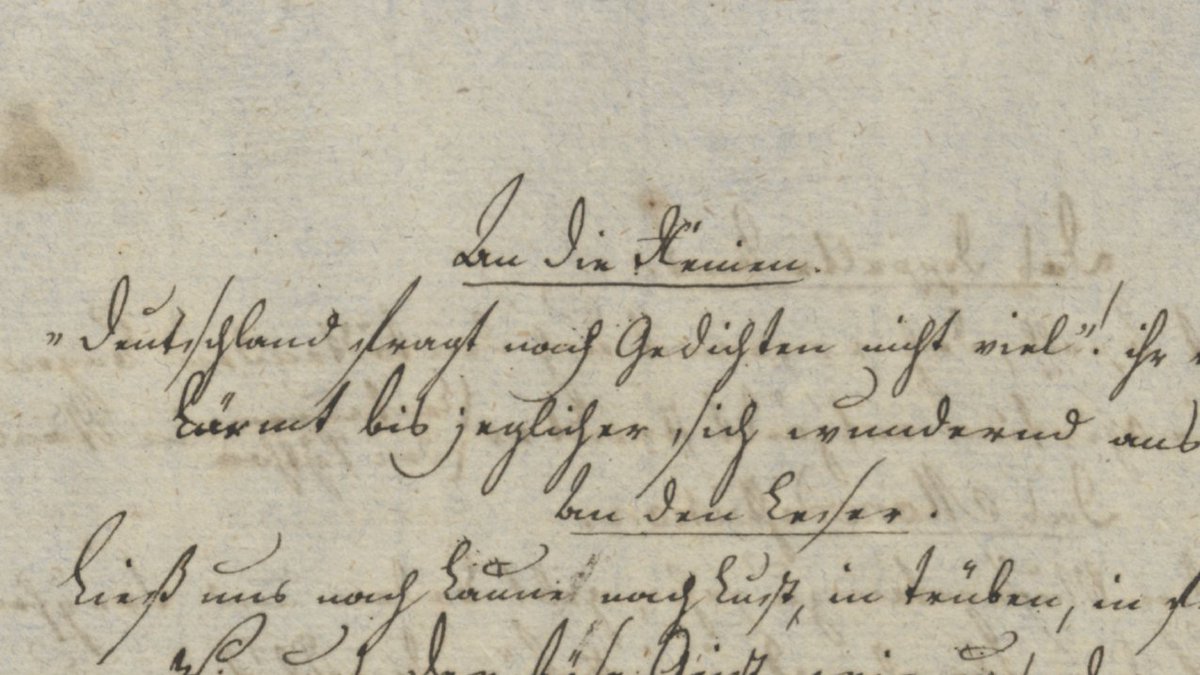 An die Xenien.
"Deutschland fragt nach Gedichten nicht viel"! ihr
Lärmt bis jeglicher sich wundernd ans
An den Leser.
Ließ uns nach Laune nach Lust, in trüben, in
der böse Geist wie uns